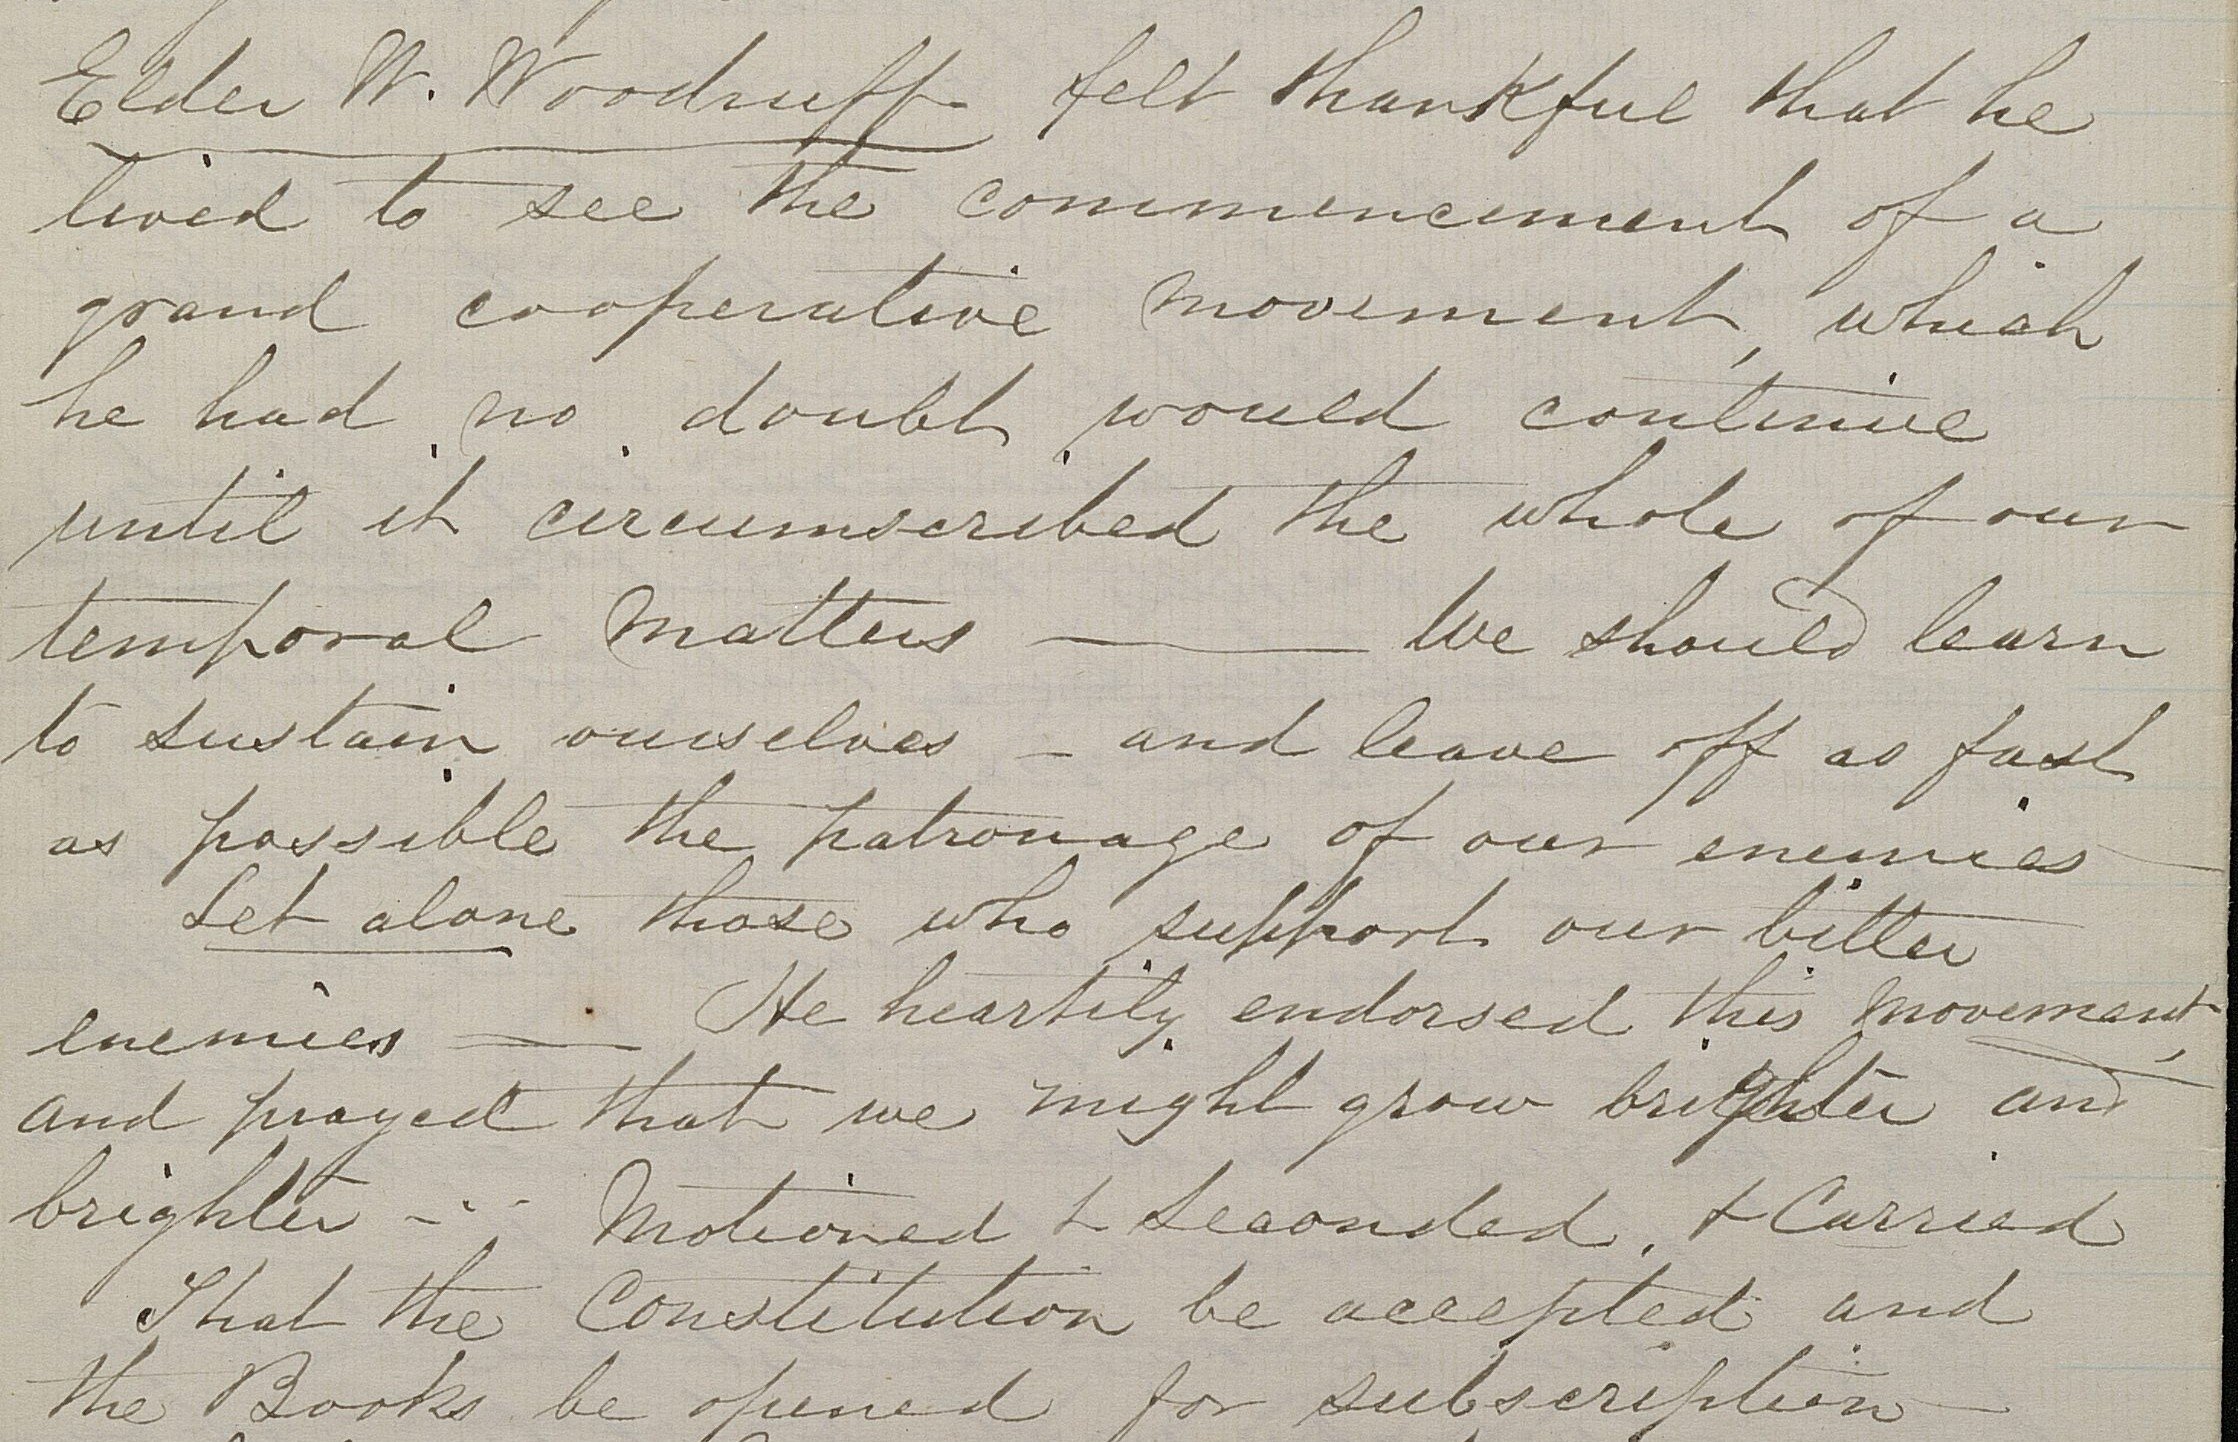 Elder W. Woodruff felt thankful that he
lived to see the commencement of a
grand cooperative movement, which
he had no doubt would continue
until it circumscribed the whole of our
temporal matters — We should learn
to sustain ourselves – and leave off as fast
as possible the patronage of our enemies —
Let alone those who support our bitter
enemies — He heartily endorsed this movement,
and prayed that we might grow brighter and
brighter – Motioned & Seconded, & Carried
That the Constitution be accepted and
the Books be opened for subscription —